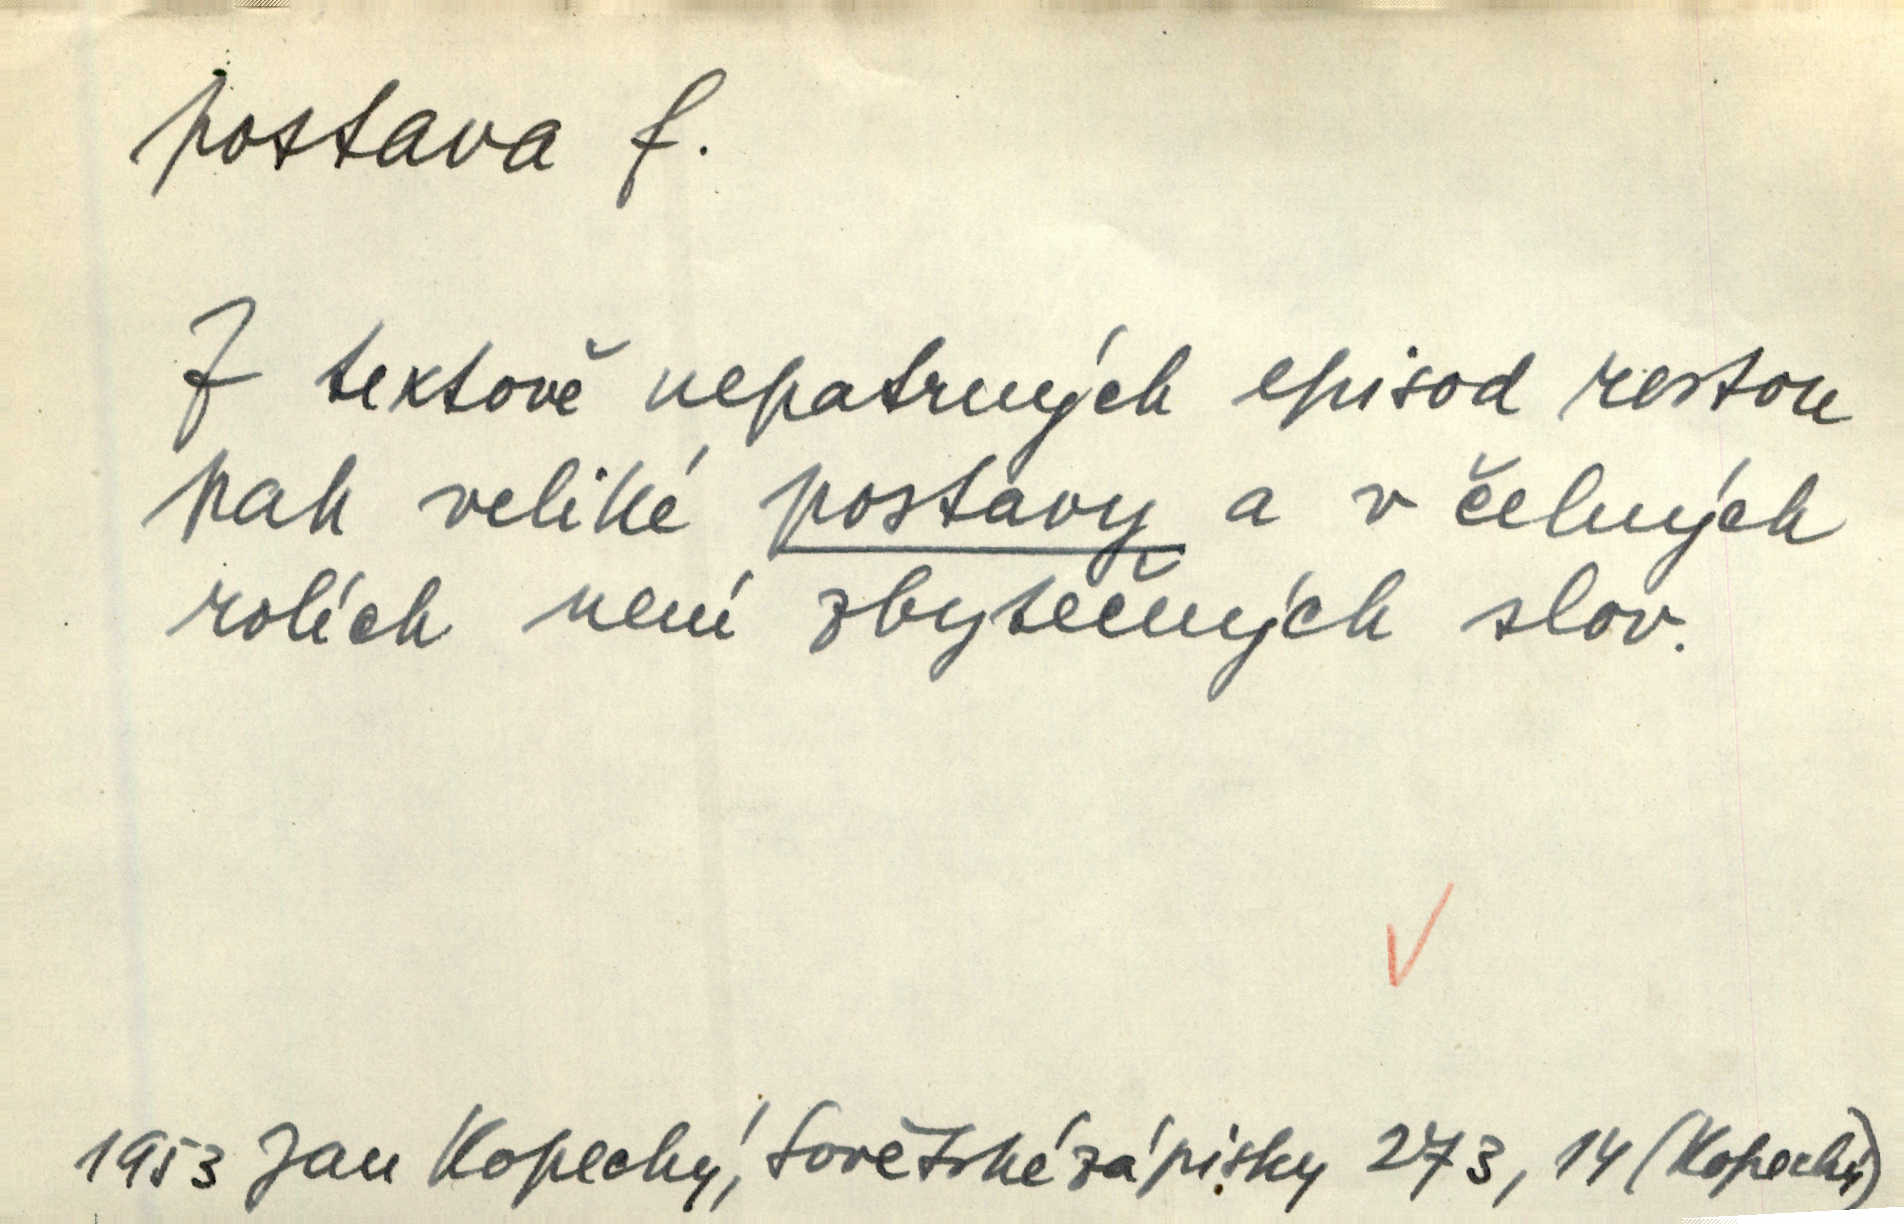 postava f.
Z textově nepatrných episod rostou
pak veliké postavy a v čelných
rolích není zbytečných slov.
1953 Jan Kopecký, Sovětské zápisky 273, 14 (Kopecký)